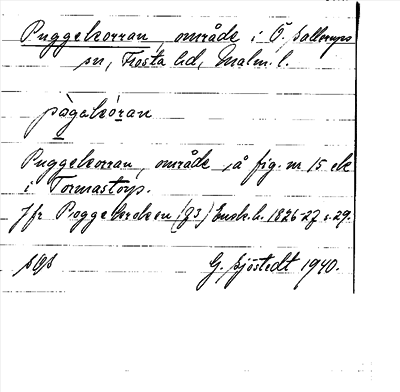 Puggekorran, område i Ö. Sallerups
sn, Frosta hd, Malm. l.
pàgakóran
Puggekorran, område å fig. nr 15 ek
i Tormastorp.
Jfr Poggekroken (Z3) Ensk. h. 1826-27 s. 29.
G. Sjöstedt 1940.